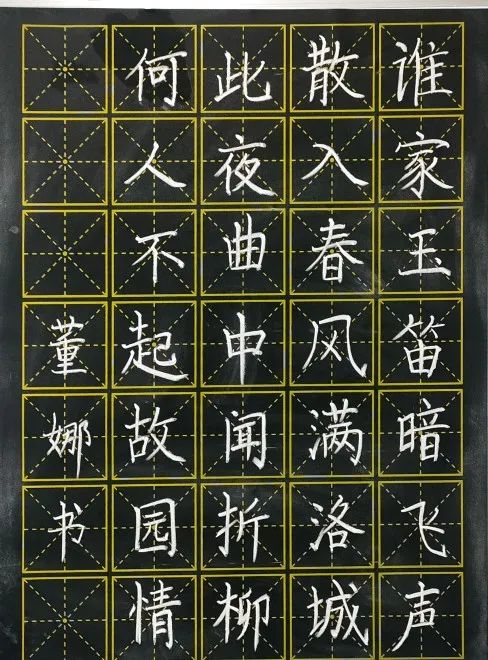 谁家玉笛暗飞声
散入春风满洛城
此夜曲中闻折柳
何人不起故园情
董娜书